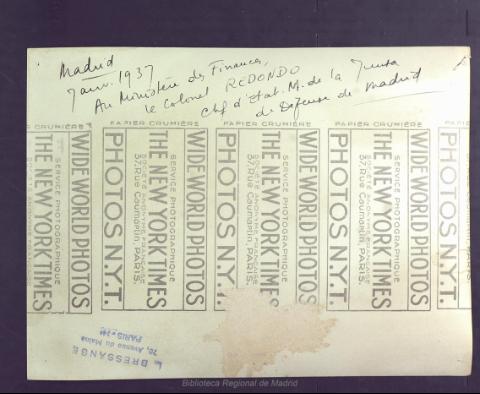 Madrid
Janv. 1937
Au Ministère des Finances,
le Colonel REDONDO
chef d'Etat. M. de la Junta
de Défense de Madrid
PAPIER CRUMIÈRE PAPIER CRUMIÈRE PAPIER CRUMIÈRE PAPIER CRUMIÈRE
WIDE WORLD PHOTOS
SERVICE PHOTOGRAPHIQUE
THE NEW YORK TIMES
SOCIÉTÉ ANONYME FRANÇAISE
37, Rue Caumartin, PARIS.
PHOTOS N.Y.T.
WIDE WORLD PHOTOS
SERVICE PHOTOGRAPHIQUE
THE NEW YORK TIMES
SOCIÉTÉ ANONYME FRANÇAISE
37, Rue Caumartin, PARIS.
PHOTOS N.Y.T.
WIDE WORLD PHOTOS
SERVICE PHOTOGRAPHIQUE
THE NEW YORK TIMES
SOCIÉTÉ ANONYME FRANÇAISE
37, Rue Caumartin, PARIS.
PHOTOS N.Y.T.
WIDE WORLD PHOTOS
SERVICE PHOTOGRAPHIQUE
THE NEW YORK TIMES
PHOTOS N.Y.T.
L. BRESSANGE
70, Avenue du Maine
PARIS - 14e
Biblioteca Regional de Madrid